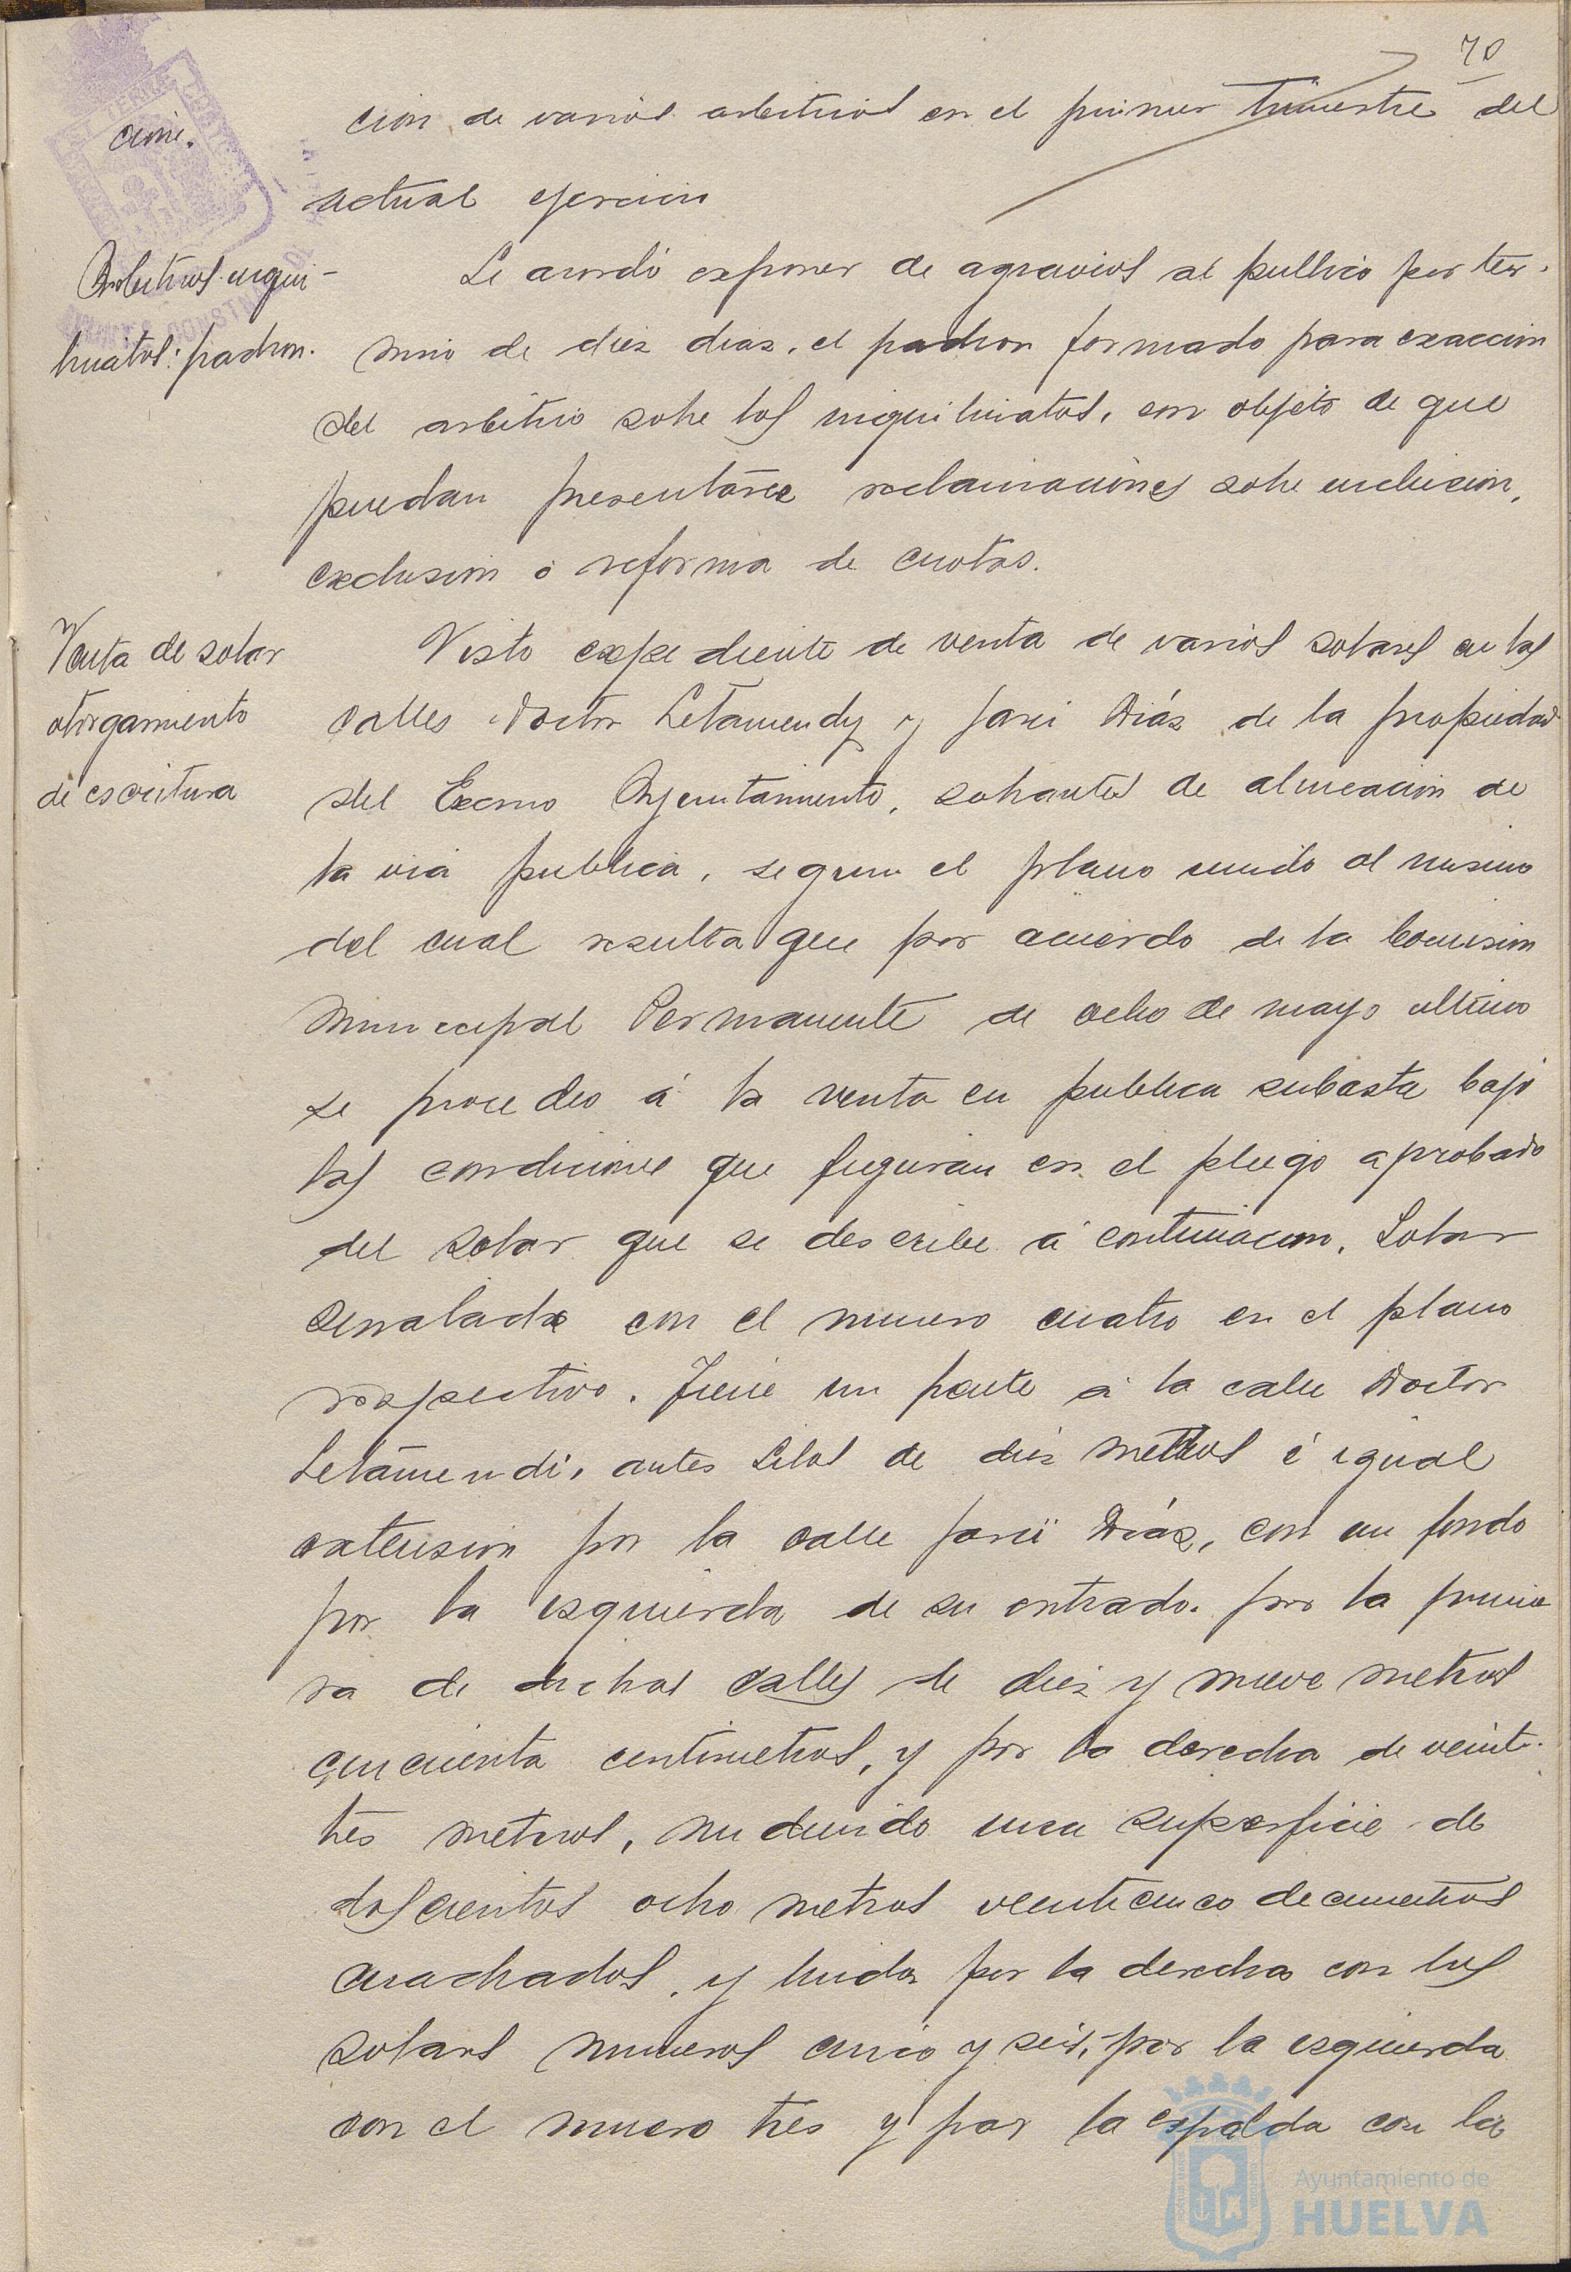 70
cion de varios arbitrios en el primer trimestre del
actual ejercicio
Arbitrios inqui-
linatos: padron.
Se acordó exponer de agravios al publico por ter-
mino de diez dias, el padron formado para exaccion
del arbitrio sobre los inquilinatos, con objeto de que
puedan presentarse reclamaciones sobre inclusion,
exclusion o reforma de cuotas.
Venta de solar
otorgamiento
de escritura
Visto expediente de venta de varios solares en las
calles Doctor Letamendy y Jarei Diáz de la propiedad
del Excmo Ayuntamiento, sobrantes de alineacion de
la via publica, segun el plano unido al mismo
del cual resulta que por acuerdo de la Comision
Municipal Permanente de ocho de mayo ultimo
se procedio á la venta en publica subasta bajo
las condiciones que figuran en el pliego aprobado
del solar que se describe á continuacion. Solar
senalado con el numero cuatro en el plano
respectivo. Tiene un frente á la calle Doctor
Letamendi, antes Silos de diez metros é igual
extension por la calle Jarei Diáz, con un fondo
por la izquierda de su entrada por la prime
ra de dichas calles de diez y nueve metros
cincuenta centimetros, y por la derecha de veinti-
tres metros, midiendo una superficie de
doscientos ocho metros veinticinco decimetros
cuadrados, y linda por la derecha con los
solares numeros cinco y seis, por la izquierda
con el numero tres y por la espalda con la
Ayuntamiento de
HUELVA